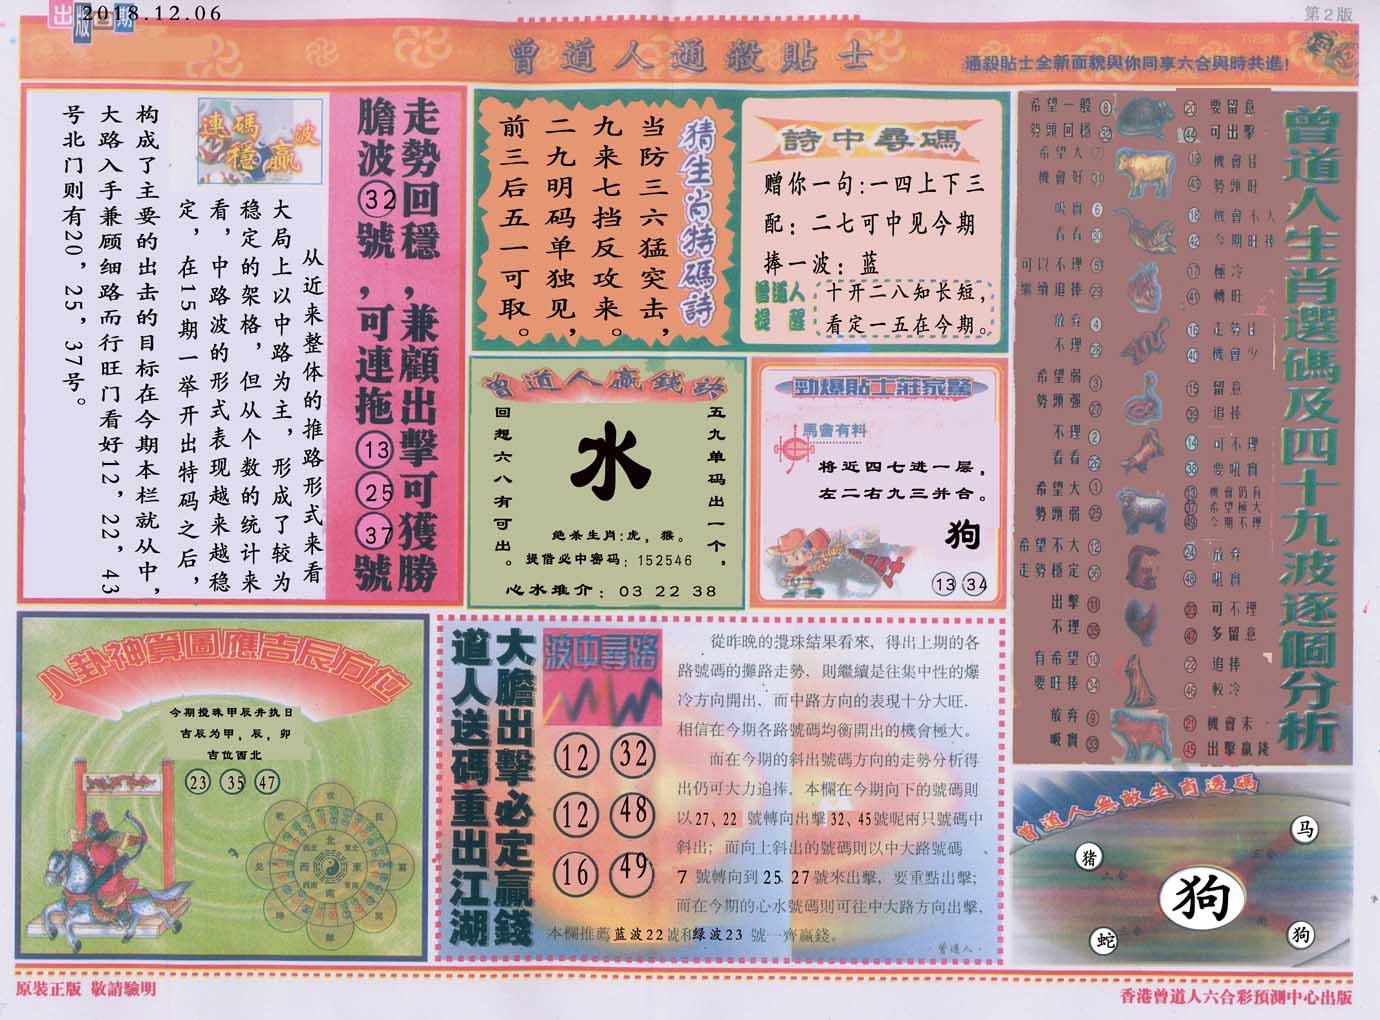 出版日期
2018.12.06
第2版
曾道人通殺貼士
通殺貼士全新面貌與你同享六合與時共進!
走勢回穩,兼顧出擊可獲勝
膽波32號,可連拖13 25 37號
連碼波
穩贏
从近来整体的推路形式来看
大局上以中路为主,形成了较为
稳定的架格,但从个数的统计来
看,中路波的形式表现越来越稳
定,在15期一举开出特码之后,
构成了主要的出击的目标在今期本栏就从中,
大路入手兼顾细路而行旺门看好12,22,43
号北门则有20,25,37号。
猜生肖特碼詩
当防三六猛突击,
九来七挡反攻来。
二九明码单独见,
前三后五一可取。
詩中尋碼
赠你一句:一四上下三
配:二七可中见今期
捧一波:蓝
曾道人
提醒
十开二八知长短,
看定一五在今期。
曾道人贏錢詩
五九单码出一个,
回想六八有可出。
水
绝杀生肖:虎,猴。
提借必中密码:152546
心水推介:03 22 38
勁爆貼士莊家驚
馬會有料
将近四七进一层,
左二右九三并合。
狗
13 34
曾道人生肖選碼及四十九波逐個分析
希望一般 8
勢頭回穩 32
20 要留意
44 可出擊
希望大
機會好 31
19 機會佳
43 勢頭旺
吸實 6
看看 30
18 機會不大
42 今期旺捧
可以不理 5
繼續追捧 29
17 極冷
41 轉旺
放弃 4
不理
16 走勢佳
40 機會少
希望弱 3
勢頭强 27
15 留意
39 追捧
不理 2
看看 26
14 可不理
38 要吼實
希望大 1
勢頭弱 25
13 機會仍有
37 希望極大
49 今期不理
希望不大 12
走勢穩定 36
24 放弃
48 吼實
出擊 11
不理 35
23 可不理
47 多留意
有希望 10
要旺捧 34
22 追捧
46 較冷
放弃 9
吸實 33
21 機會未
45 出擊贏錢
八卦神算圖應吉辰方位
今期搅珠甲辰并执日
吉辰为甲,辰,卯
吉位西北
23 35 47
北
東
南
西
大膽出擊必定贏錢
道人送碼重出江湖
波中尋路
12 32
12 48
16 49
從昨晚的攪珠結果看來,得出上期的各
路號碼的攤路走勢,則繼續是往集中性的爆
冷方向開出,而中路方向的表現十分大旺.
相信在今期各路號碼均衡開出的機會極大。
而在今期的斜出號碼方向的走勢分析得
出仍可大力追捧,本欄在今期向下的號碼則
以27、22 號轉向出擊32、45號呢兩只號碼中
斜出;而向上斜出的號碼則以中大路號碼、
7 號轉向到25 27號來出擊,要重點出擊;
而在今期的心水號碼則可往中大路方向出擊,
本欄推薦蓝波22號和绿波23 號一齊贏錢。
曾道人.
曾道人無敵生肖透碼
马
猪
狗
蛇
狗
原裝正版 敬請驗明
香港曾道人六合彩預測中心出版